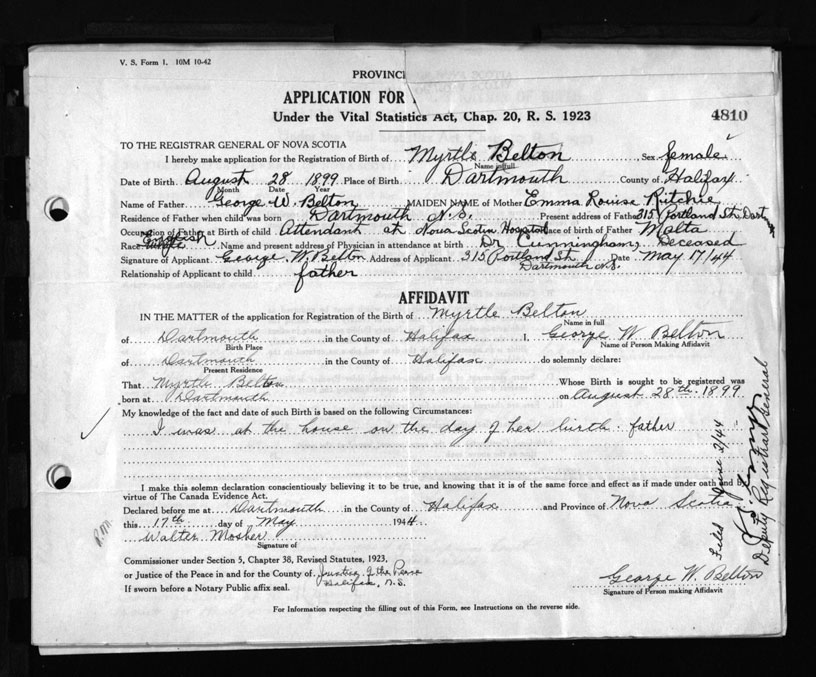 V. S. Form 1. 10M 10-42
PROVINC
APPLICATION FOR
Under the Vital Statistics Act, Chap. 20, R. S. 1923
4810
TO THE REGISTRAR GENERAL OF NOVA SCOTIA
I hereby make application for the Registration of Birth of Myrtle Belton Sex female
Name in full
Date of Birth August 28 1899 Place of Birth Dartmouth County of Halifax
Month Date Year
Name of Father George W. Belton MAIDEN NAME of Mother Emma Louise Ritchie
Residence of Father when child was born Dartmouth N.S. Present address of Father 315 Portland St. Dart
Occupation of Father at Birth of child Attendant at Nova Scotia Hospital Place of birth of Father Malta
Race English Name and present address of Physician in attendance at birth Dr Cunningham, Deceased
Signature of Applicant George W. Belton Address of Applicant 315 Portland St. Date May 17/44
Dartmouth N.S.
Relationship of Applicant to child father
AFFIDAVIT
IN THE MATTER of the application for Registration of the Birth of Myrtle Belton
Name in full
of Dartmouth in the County of Halifax I, George W Belton
Birth Place Name of Person Making Affidavit
of Dartmouth in the County of Halifax do solemnly declare:
Present Residence
That Myrtle Belton Whose Birth is sought to be registered was
born at Dartmouth on August 28th 1899
My knowledge of the fact and date of such Birth is based on the following Circumstances:
I was at the house on the day of her birth. father
I make this solemn declaration conscientiously believing it to be true, and knowing that it is of the same force and effect as if made under oath and by
virtue of The Canada Evidence Act.
Declared before me at Dartmouth in the County of Halifax and Province of Nova Scotia
this 17th day of May 1944
Walter Mosher
Signature of
Commissioner under Section 5, Chapter 38, Revised Statutes, 1923,
or Justice of the Peace in and for the County of Justice of the Peace
Halifax, N.S.
If sworn before a Notary Public affix seal.
George W. Belton
Signature of Person making Affidavit
For Information respecting the filling out of this Form, see Instructions on the reverse side.
Filed June 2/44
Deputy Registrar General